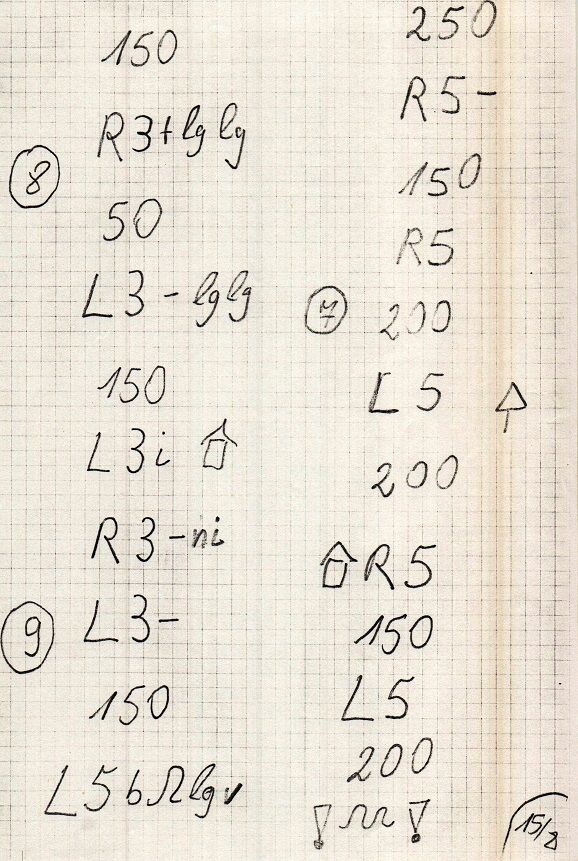 150
R3+lglg
8
50
L3-lglg
150
L3i
R3-ni
9
L3-
150
L5b lg
250
R5-
150
R5
7
200
L5
200
R5
150
L5
200
! !
15/2